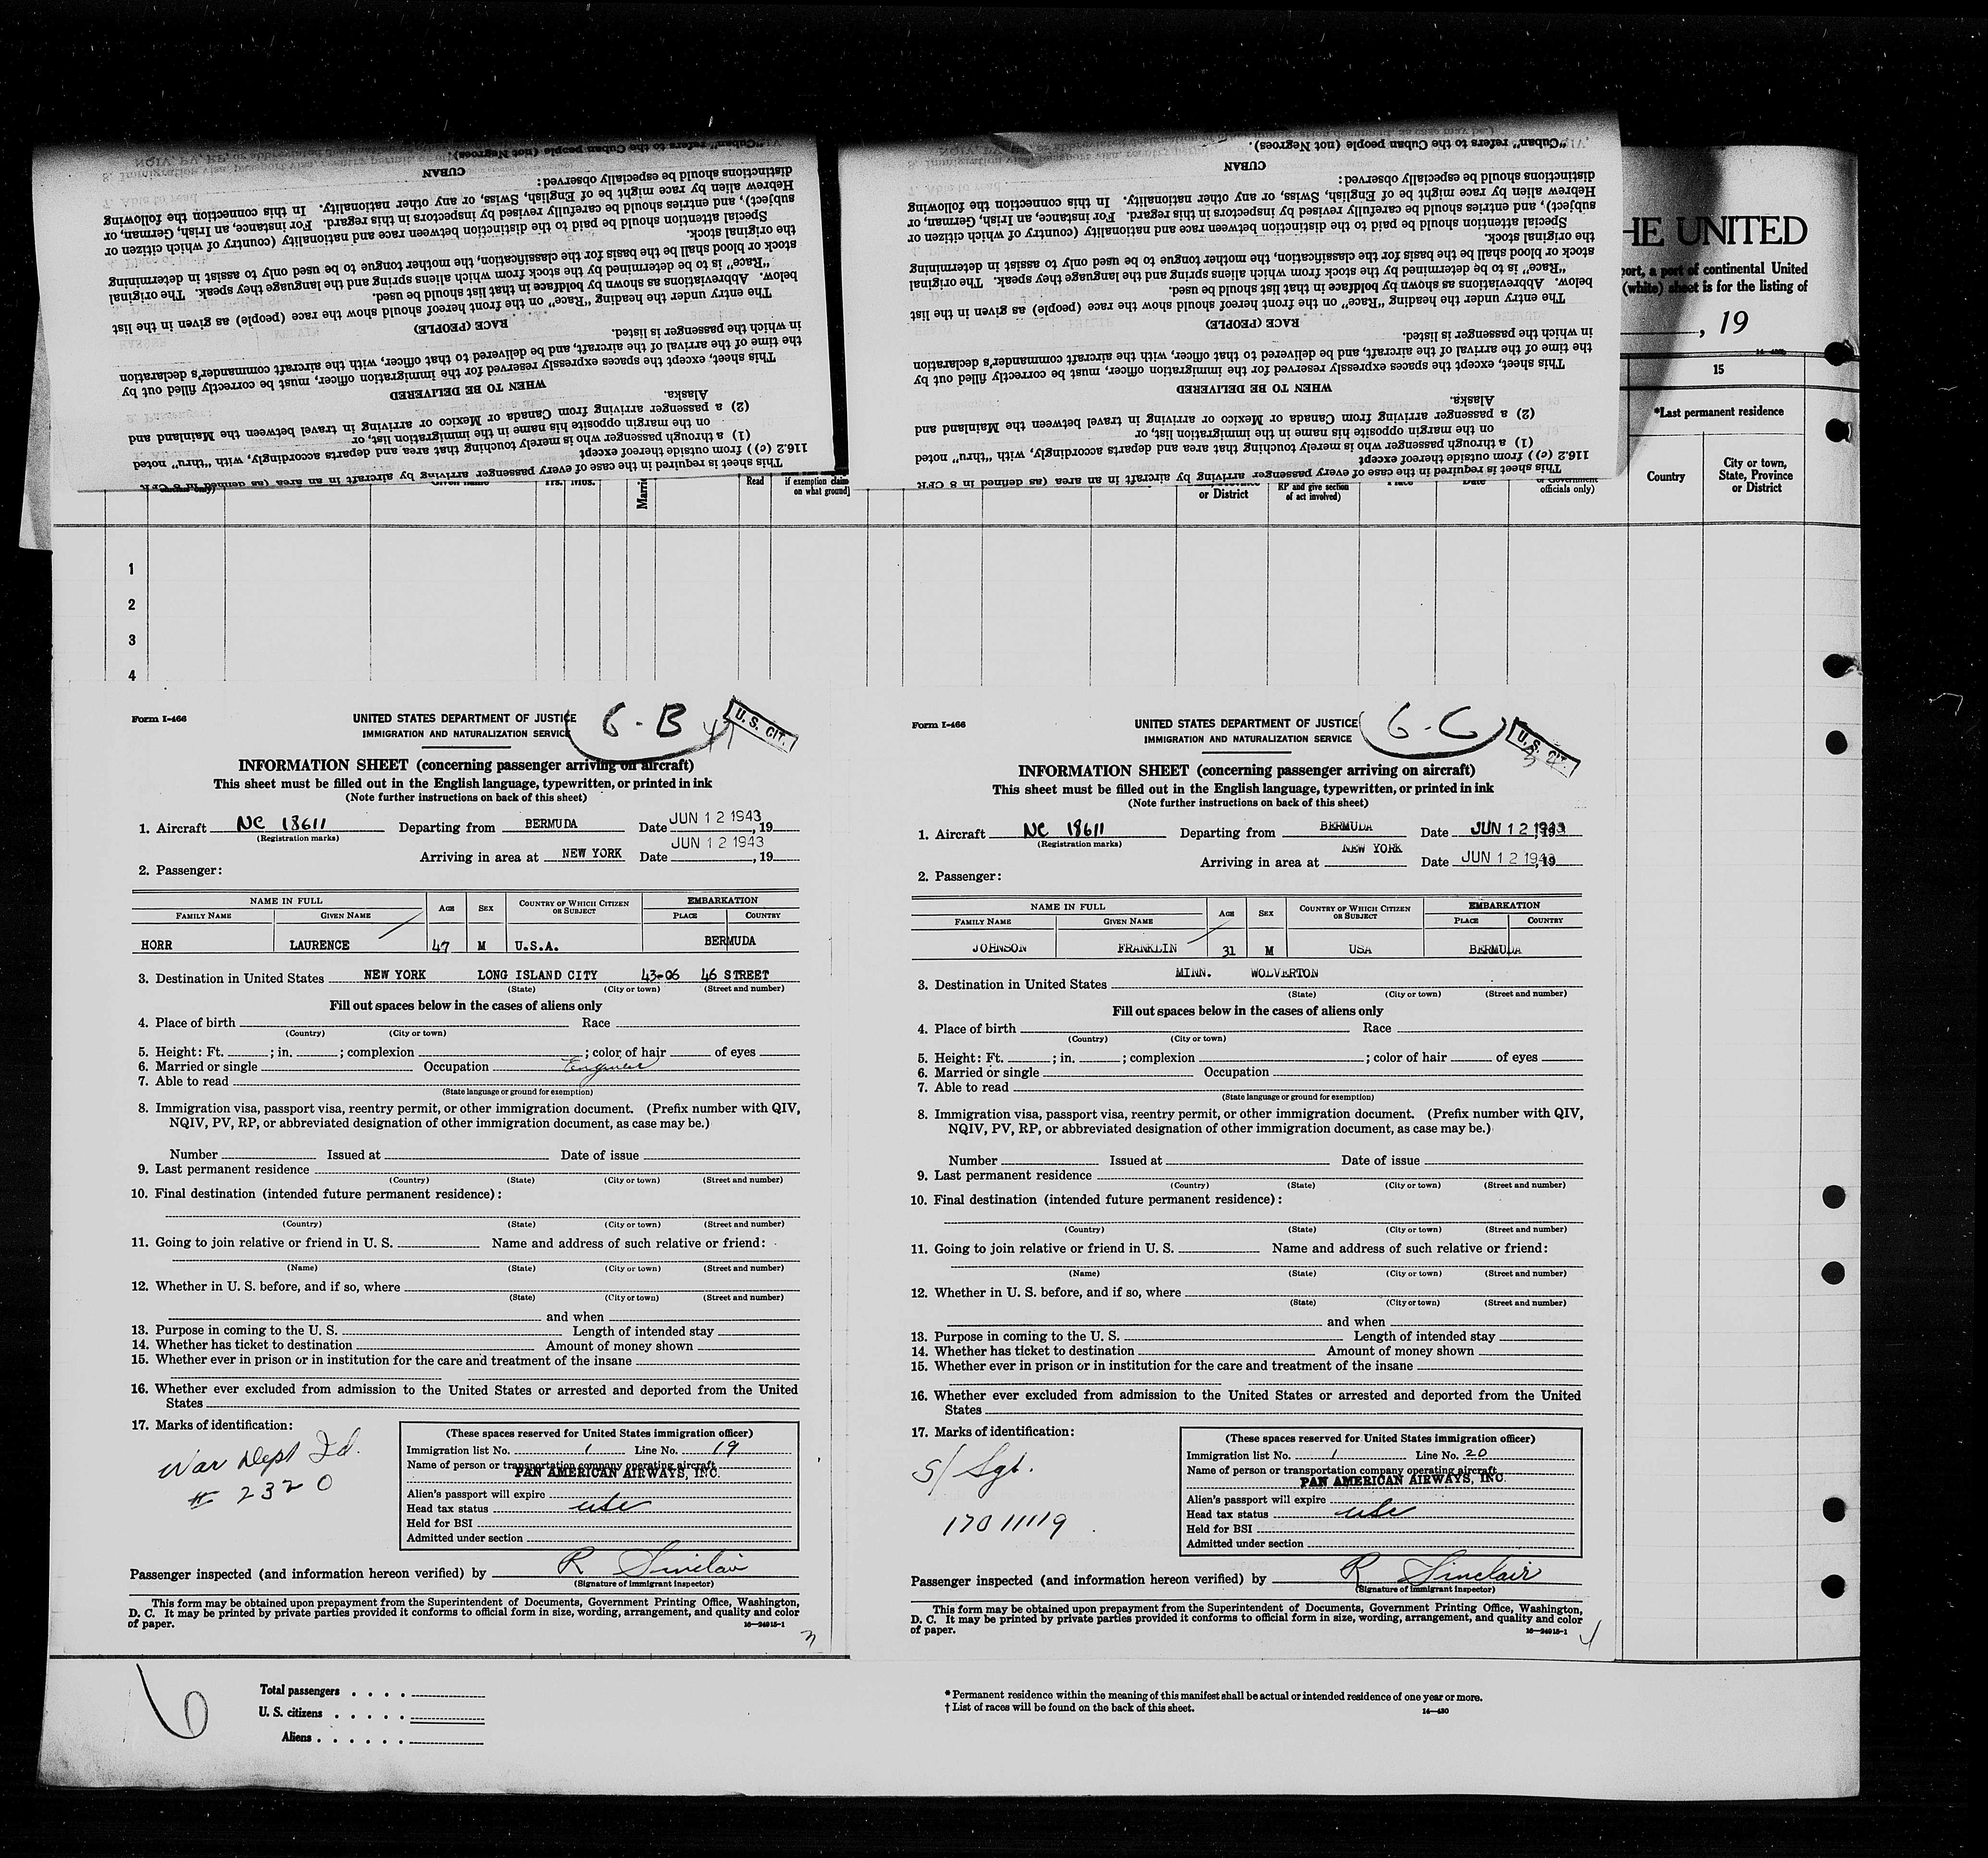 "Cuban" refers to the Cuban people (not Negroes).
CUBAN
distinctions should be especially observed:
Hebrew alien by race might be of English, Swiss, or any other nationality. In this connection the following
subject), and entries should be carefully revised by inspectors in this regard. For instance, an Irish, German, or
Special attention should be paid to the distinction between race and nationality (country of which citizen or
the original stock.
stock or blood shall be the basis for the classification, the mother tongue to be used only to assist in determining
"Race" is to be determined by the stock from which aliens spring and the language they speak. The original
below. Abbreviations as shown by boldface in that list should be used.
The entry under the heading "Race" on the front hereof should show the race (people) as given in the list
RACE (PEOPLE)
in which the passenger is listed.
the time of the arrival of the aircraft, and be delivered to that officer, with the aircraft commander's declaration
This sheet, except the spaces expressly reserved for the immigration officer, must be correctly filled out by
WHEN TO BE DELIVERED
Alaska.
(2) a passenger arriving from Canada or Mexico or arriving in travel between the Mainland and
on the margin opposite his name in the immigration list, or
(1) a through passenger who is merely touching that area and departs accordingly, with "thru" noted
116.2 (c)) from outside thereof except
This sheet is required in the case of every passenger arriving by aircraft in an area (as defined in 8 CFR
"Cuban" refers to the Cuban people (not Negroes).
CUBAN
distinctions should be especially observed:
Hebrew alien by race might be of English, Swiss, or any other nationality. In this connection the following
subject), and entries should be carefully revised by inspectors in this regard. For instance, an Irish, German, or
Special attention should be paid to the distinction between race and nationality (country of which citizen or
the original stock.
stock or blood shall be the basis for the classification, the mother tongue to be used only to assist in determining
"Race" is to be determined by the stock from which aliens spring and the language they speak. The original
below. Abbreviations as shown by boldface in that list should be used.
The entry under the heading "Race" on the front hereof should show the race (people) as given in the list
RACE (PEOPLE)
in which the passenger is listed.
the time of the arrival of the aircraft, and be delivered to that officer, with the aircraft commander's declaration
This sheet, except the spaces expressly reserved for the immigration officer, must be correctly filled out by
WHEN TO BE DELIVERED
Alaska.
(2) a passenger arriving from Canada or Mexico or arriving in travel between the Mainland and
on the margin opposite his name in the immigration list, or
(1) a through passenger who is merely touching that area and departs accordingly, with "thru" noted
116.2 (c)) from outside thereof except
This sheet is required in the case of every passenger arriving by aircraft in an area (as defined in 8 CFR
HE UNITED
port, a port of continental United
(white) sheet is for the listing of
, 19
15
*Last permanent residence
Country
City or town,
State, Province
or District
Read
if exemption claim
on what ground)
or District
RP and give section
of act involved)
officials only)
1
2
3
4
Form I-466
UNITED STATES DEPARTMENT OF JUSTICE
IMMIGRATION AND NATURALIZATION SERVICE
6-B
U. S. CIT.
INFORMATION SHEET (concerning passenger arriving on aircraft)
This sheet must be filled out in the English language, typewritten, or printed in ink
(Note further instructions on back of this sheet)
1. Aircraft NC 18611 Departing from BERMUDA Date JUN 12 1943, 19
(Registration marks)
Arriving in area at NEW YORK Date JUN 12 1943, 19
2. Passenger:
NAME IN FULL
FAMILY NAME GIVEN NAME AGE SEX COUNTRY OF WHICH CITIZEN OR SUBJECT EMBARKATION PLACE COUNTRY
HORR LAURENCE 47 M U.S.A. BERMUDA
3. Destination in United States NEW YORK LONG ISLAND CITY 43-06 46 STREET
(State) (City or town) (Street and number)
Fill out spaces below in the cases of aliens only
4. Place of birth Race
(Country) (City or town)
5. Height: Ft. ; in. ; complexion ; color of hair of eyes
6. Married or single Occupation Engineer
7. Able to read
(State language or ground for exemption)
8. Immigration visa, passport visa, reentry permit, or other immigration document. (Prefix number with QIV,
NQIV, PV, RP, or abbreviated designation of other immigration document, as case may be.)
Number Issued at Date of issue
9. Last permanent residence
(Country) (State) (City or town) (Street and number)
10. Final destination (intended future permanent residence):
(Country) (State) (City or town) (Street and number)
11. Going to join relative or friend in U. S. Name and address of such relative or friend:
(Name) (State) (City or town) (Street and number)
12. Whether in U. S. before, and if so, where
(State) (City or town) (Street and number)
and when
13. Purpose in coming to the U. S. Length of intended stay
14. Whether has ticket to destination Amount of money shown
15. Whether ever in prison or in institution for the care and treatment of the insane
16. Whether ever excluded from admission to the United States or arrested and deported from the United
States
17. Marks of identification:
War Dept Id.
# 2320
(These spaces reserved for United States immigration officer)
Immigration list No. 1 Line No. 19
Name of person or transportation company operating aircraft
PAN AMERICAN AIRWAYS, INC.
Alien's passport will expire
Head tax status usc
Held for BSI
Admitted under section
Passenger inspected (and information hereon verified) by R Sinclair
(Signature of immigrant inspector)
This form may be obtained upon prepayment from the Superintendent of Documents, Government Printing Office, Washington,
D. C. It may be printed by private parties provided it conforms to official form in size, wording, arrangement, and quality and color
of paper.
16-24915-1
3
Form I-466
UNITED STATES DEPARTMENT OF JUSTICE
IMMIGRATION AND NATURALIZATION SERVICE
6-C
U. S. CIT.
INFORMATION SHEET (concerning passenger arriving on aircraft)
This sheet must be filled out in the English language, typewritten, or printed in ink
(Note further instructions on back of this sheet)
1. Aircraft NC 18611 Departing from BERMUDA Date JUN 12 1943
(Registration marks)
Arriving in area at NEW YORK Date JUN 12 1943, 19
2. Passenger:
NAME IN FULL
FAMILY NAME GIVEN NAME AGE SEX COUNTRY OF WHICH CITIZEN OR SUBJECT EMBARKATION PLACE COUNTRY
JOHNSON FRANKLIN 31 M USA BERMUDA
MINN. WOLVERTON
3. Destination in United States
(State) (City or town) (Street and number)
Fill out spaces below in the cases of aliens only
4. Place of birth Race
(Country) (City or town)
5. Height: Ft. ; in. ; complexion ; color of hair of eyes
6. Married or single Occupation
7. Able to read
(State language or ground for exemption)
8. Immigration visa, passport visa, reentry permit, or other immigration document. (Prefix number with QIV,
NQIV, PV, RP, or abbreviated designation of other immigration document, as case may be.)
Number Issued at Date of issue
9. Last permanent residence
(Country) (State) (City or town) (Street and number)
10. Final destination (intended future permanent residence):
(Country) (State) (City or town) (Street and number)
11. Going to join relative or friend in U. S. Name and address of such relative or friend:
(Name) (State) (City or town) (Street and number)
12. Whether in U. S. before, and if so, where
(State) (City or town) (Street and number)
and when
13. Purpose in coming to the U. S. Length of intended stay
14. Whether has ticket to destination Amount of money shown
15. Whether ever in prison or in institution for the care and treatment of the insane
16. Whether ever excluded from admission to the United States or arrested and deported from the United
States
17. Marks of identification:
S/Sgt.
17011119
(These spaces reserved for United States immigration officer)
Immigration list No. 1 Line No. 20
Name of person or transportation company operating aircraft
PAN AMERICAN AIRWAYS, INC.
Alien's passport will expire
Head tax status usc
Held for BSI
Admitted under section
Passenger inspected (and information hereon verified) by R Sinclair
(Signature of immigrant inspector)
This form may be obtained upon prepayment from the Superintendent of Documents, Government Printing Office, Washington,
D. C. It may be printed by private parties provided it conforms to official form in size, wording, arrangement, and quality and color
of paper.
16-24915-1
4
6
Total passengers
U. S. citizens
Aliens
* Permanent residence within the meaning of this manifest shall be actual or intended residence of one year or more.
† List of races will be found on the back of this sheet.
14-430